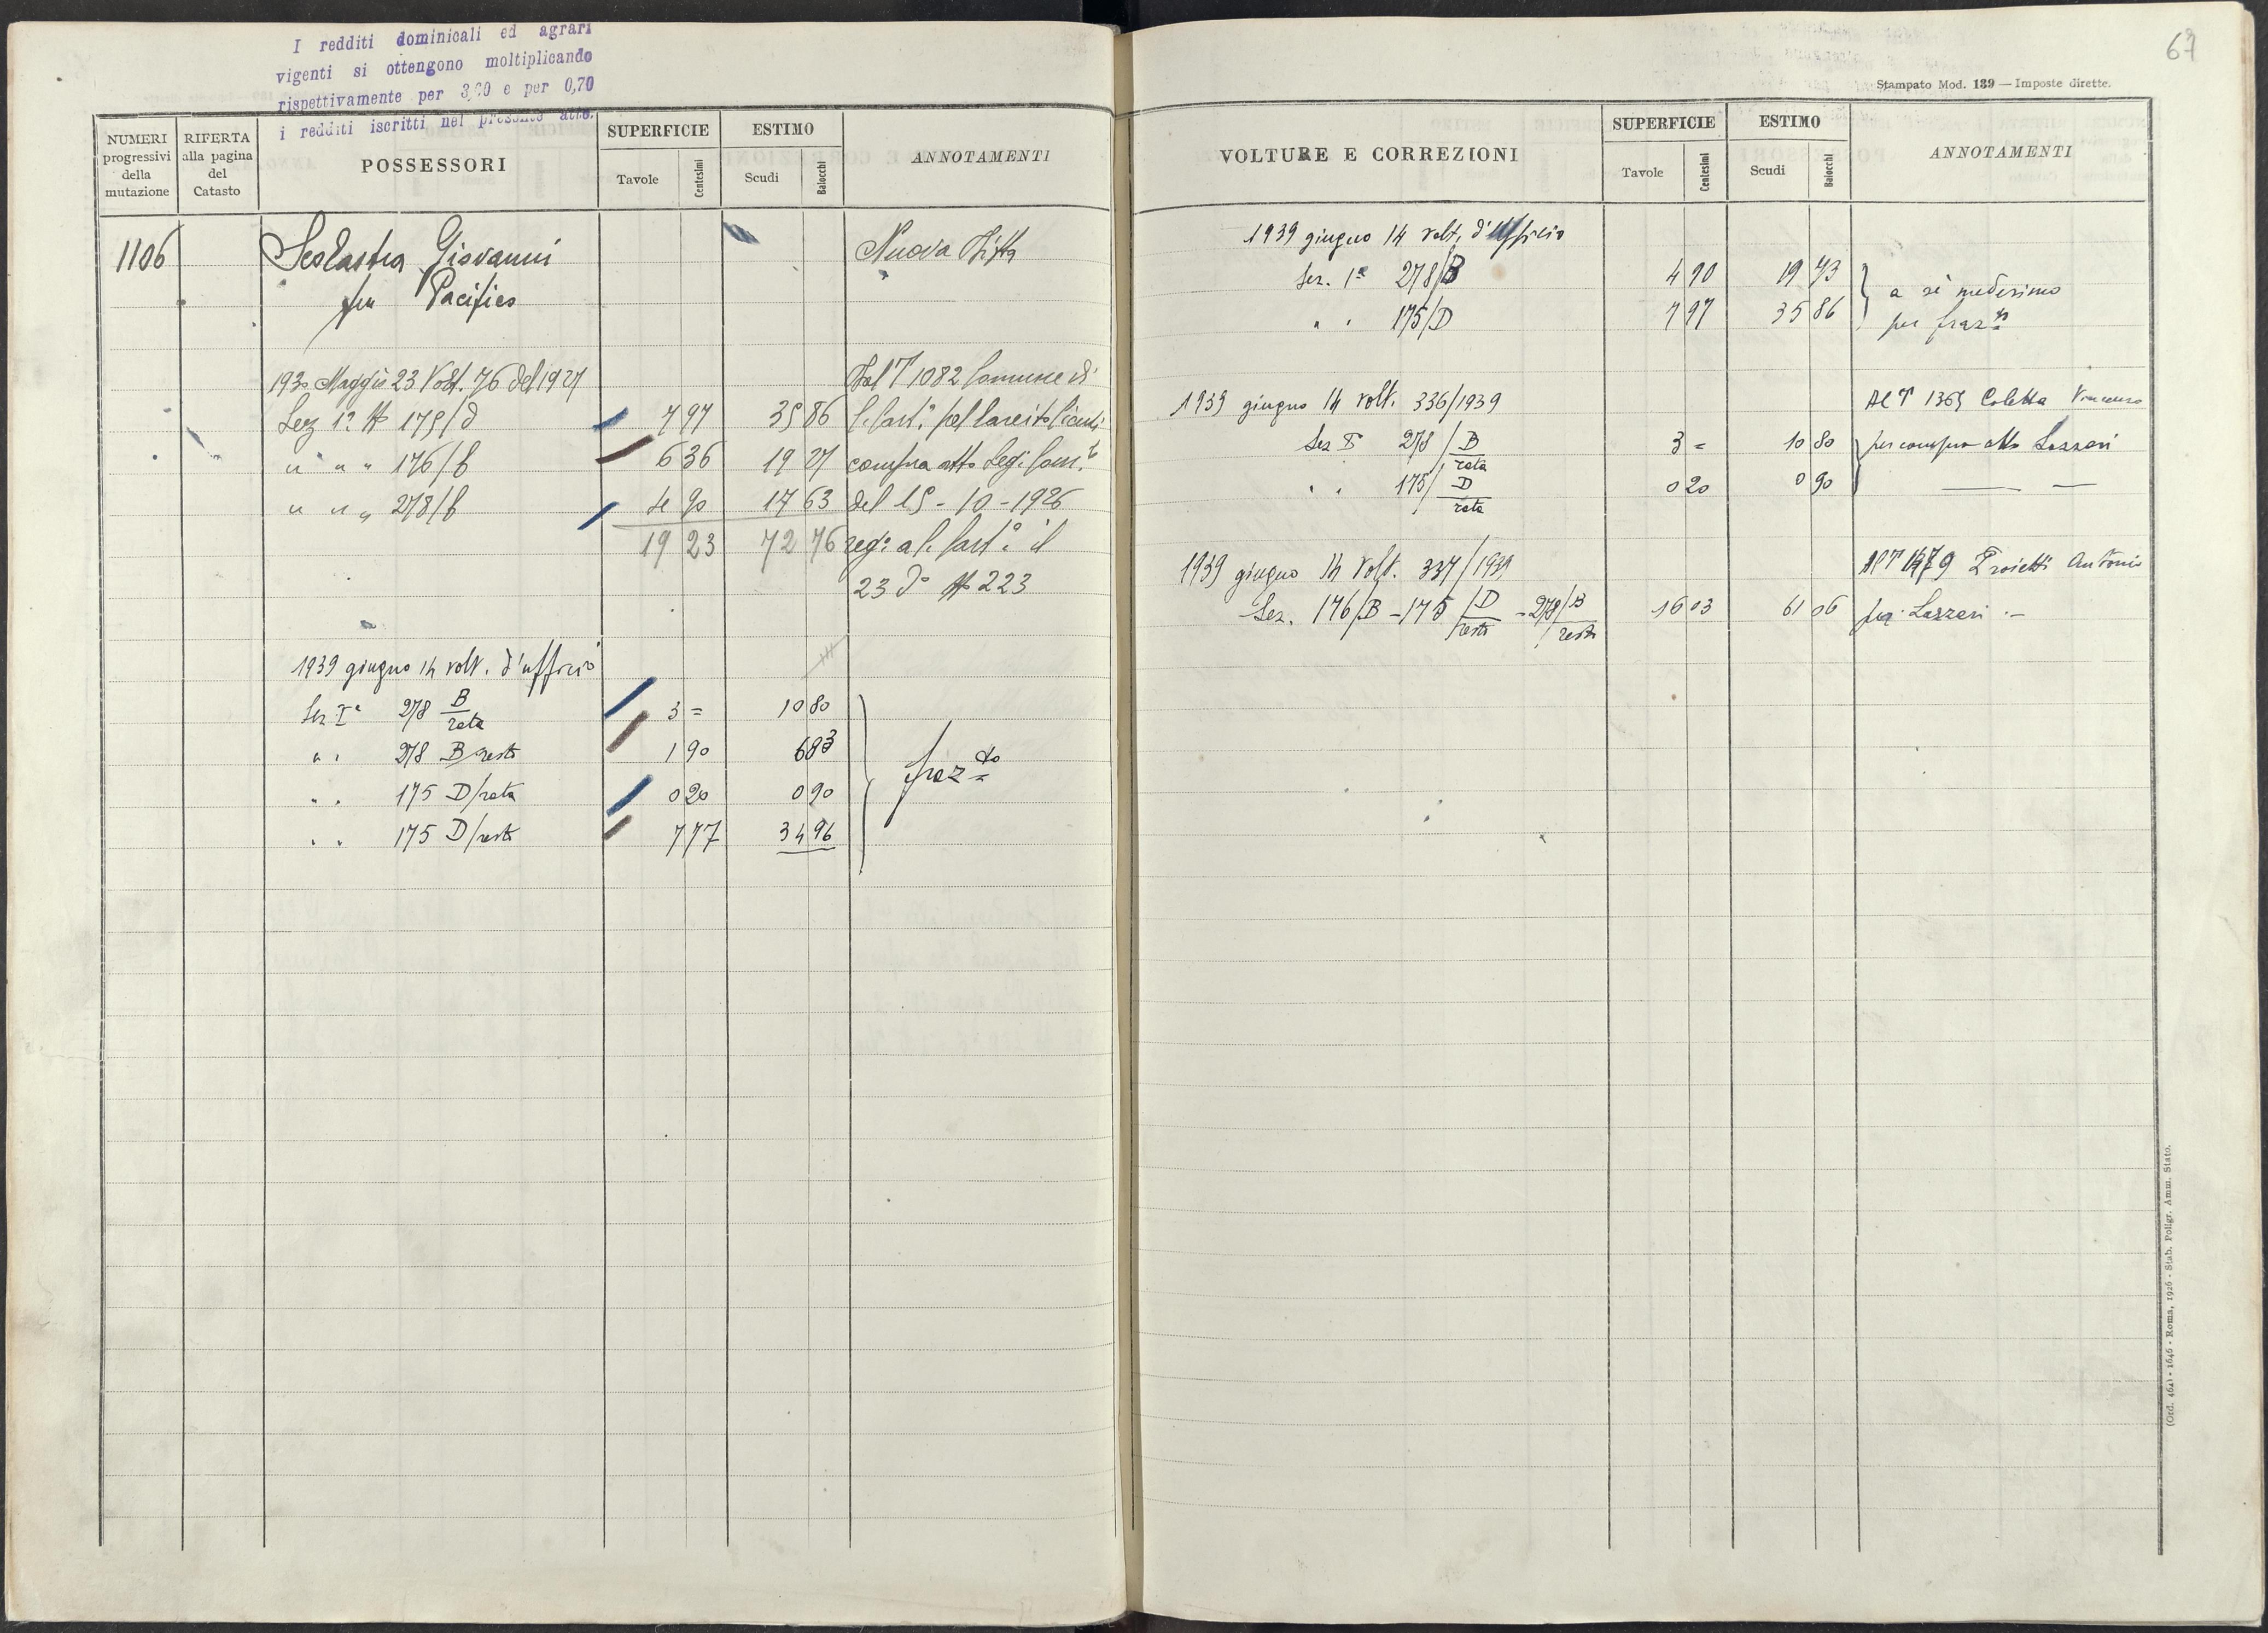 I redditi dominicali ed agrari
vigenti si ottengono moltiplicando
rispettivamente per 3,00 e per 0,70
i redditi iscritti nel presente atto.
NUMERI progressivi della mutazione
RIFERTA alla pagina del Catasto
POSSESSORI
SUPERFICIE
Tavole Centesimi
ESTIMO
Scudi Baiocchi
ANNOTAMENTI
1106 Scolastra Giovanni Nuova Ditta
fu Pacifico
1930 Maggio 23 Volt. 76 del 1927 Dal T 1082 Comune di
Sez 1ª № 175/d 7 97 35 86
" " " 176/b 6 36 19 27 compra atto Seg. Com.
" " " 278/b 4 90 17 63 del 15-10-1926
19 23 72 76 reg. a C. Cast.º il
23 dº № 223
1939 giugno 14 volt. d'ufficio
Sez Iª 278 B/rata 3 = 10 80
" " 278 B resto 1 90 6 83 fraz.to
" " 175 D/rata 0 20 0 90
" " 175 D/resto 7 77 34 96
67
Stampato Mod. 139 — Imposte dirette.
VOLTURE E CORREZIONI
SUPERFICIE
Tavole Centesimi
ESTIMO
Scudi Baiocchi
ANNOTAMENTI
1939 giugno 14 volt. d'Ufficio
Sez. 1ª 278/B 4 90 19 73 a sè medesimo
" " 175/D 7 97 35 86 per fraz.to
1939 giugno 14 volt. 336/1939 Al T 1365 Coletta Vincenzo
Sez I 278/B/rata 3 = 10 80 per compra atto Lazzari
" " 175/D/rata 0 20 0 90
1939 giugno 14 Volt. 337/1939 Al T Proietti Antonio
Sez. 176/B - 175/D/resto - 278/B/resto 16 03 61 06 per Lazzari
(Ord. 462) - 1646 - Roma, 1926 - Stab. Poligr. Amm. Stato.